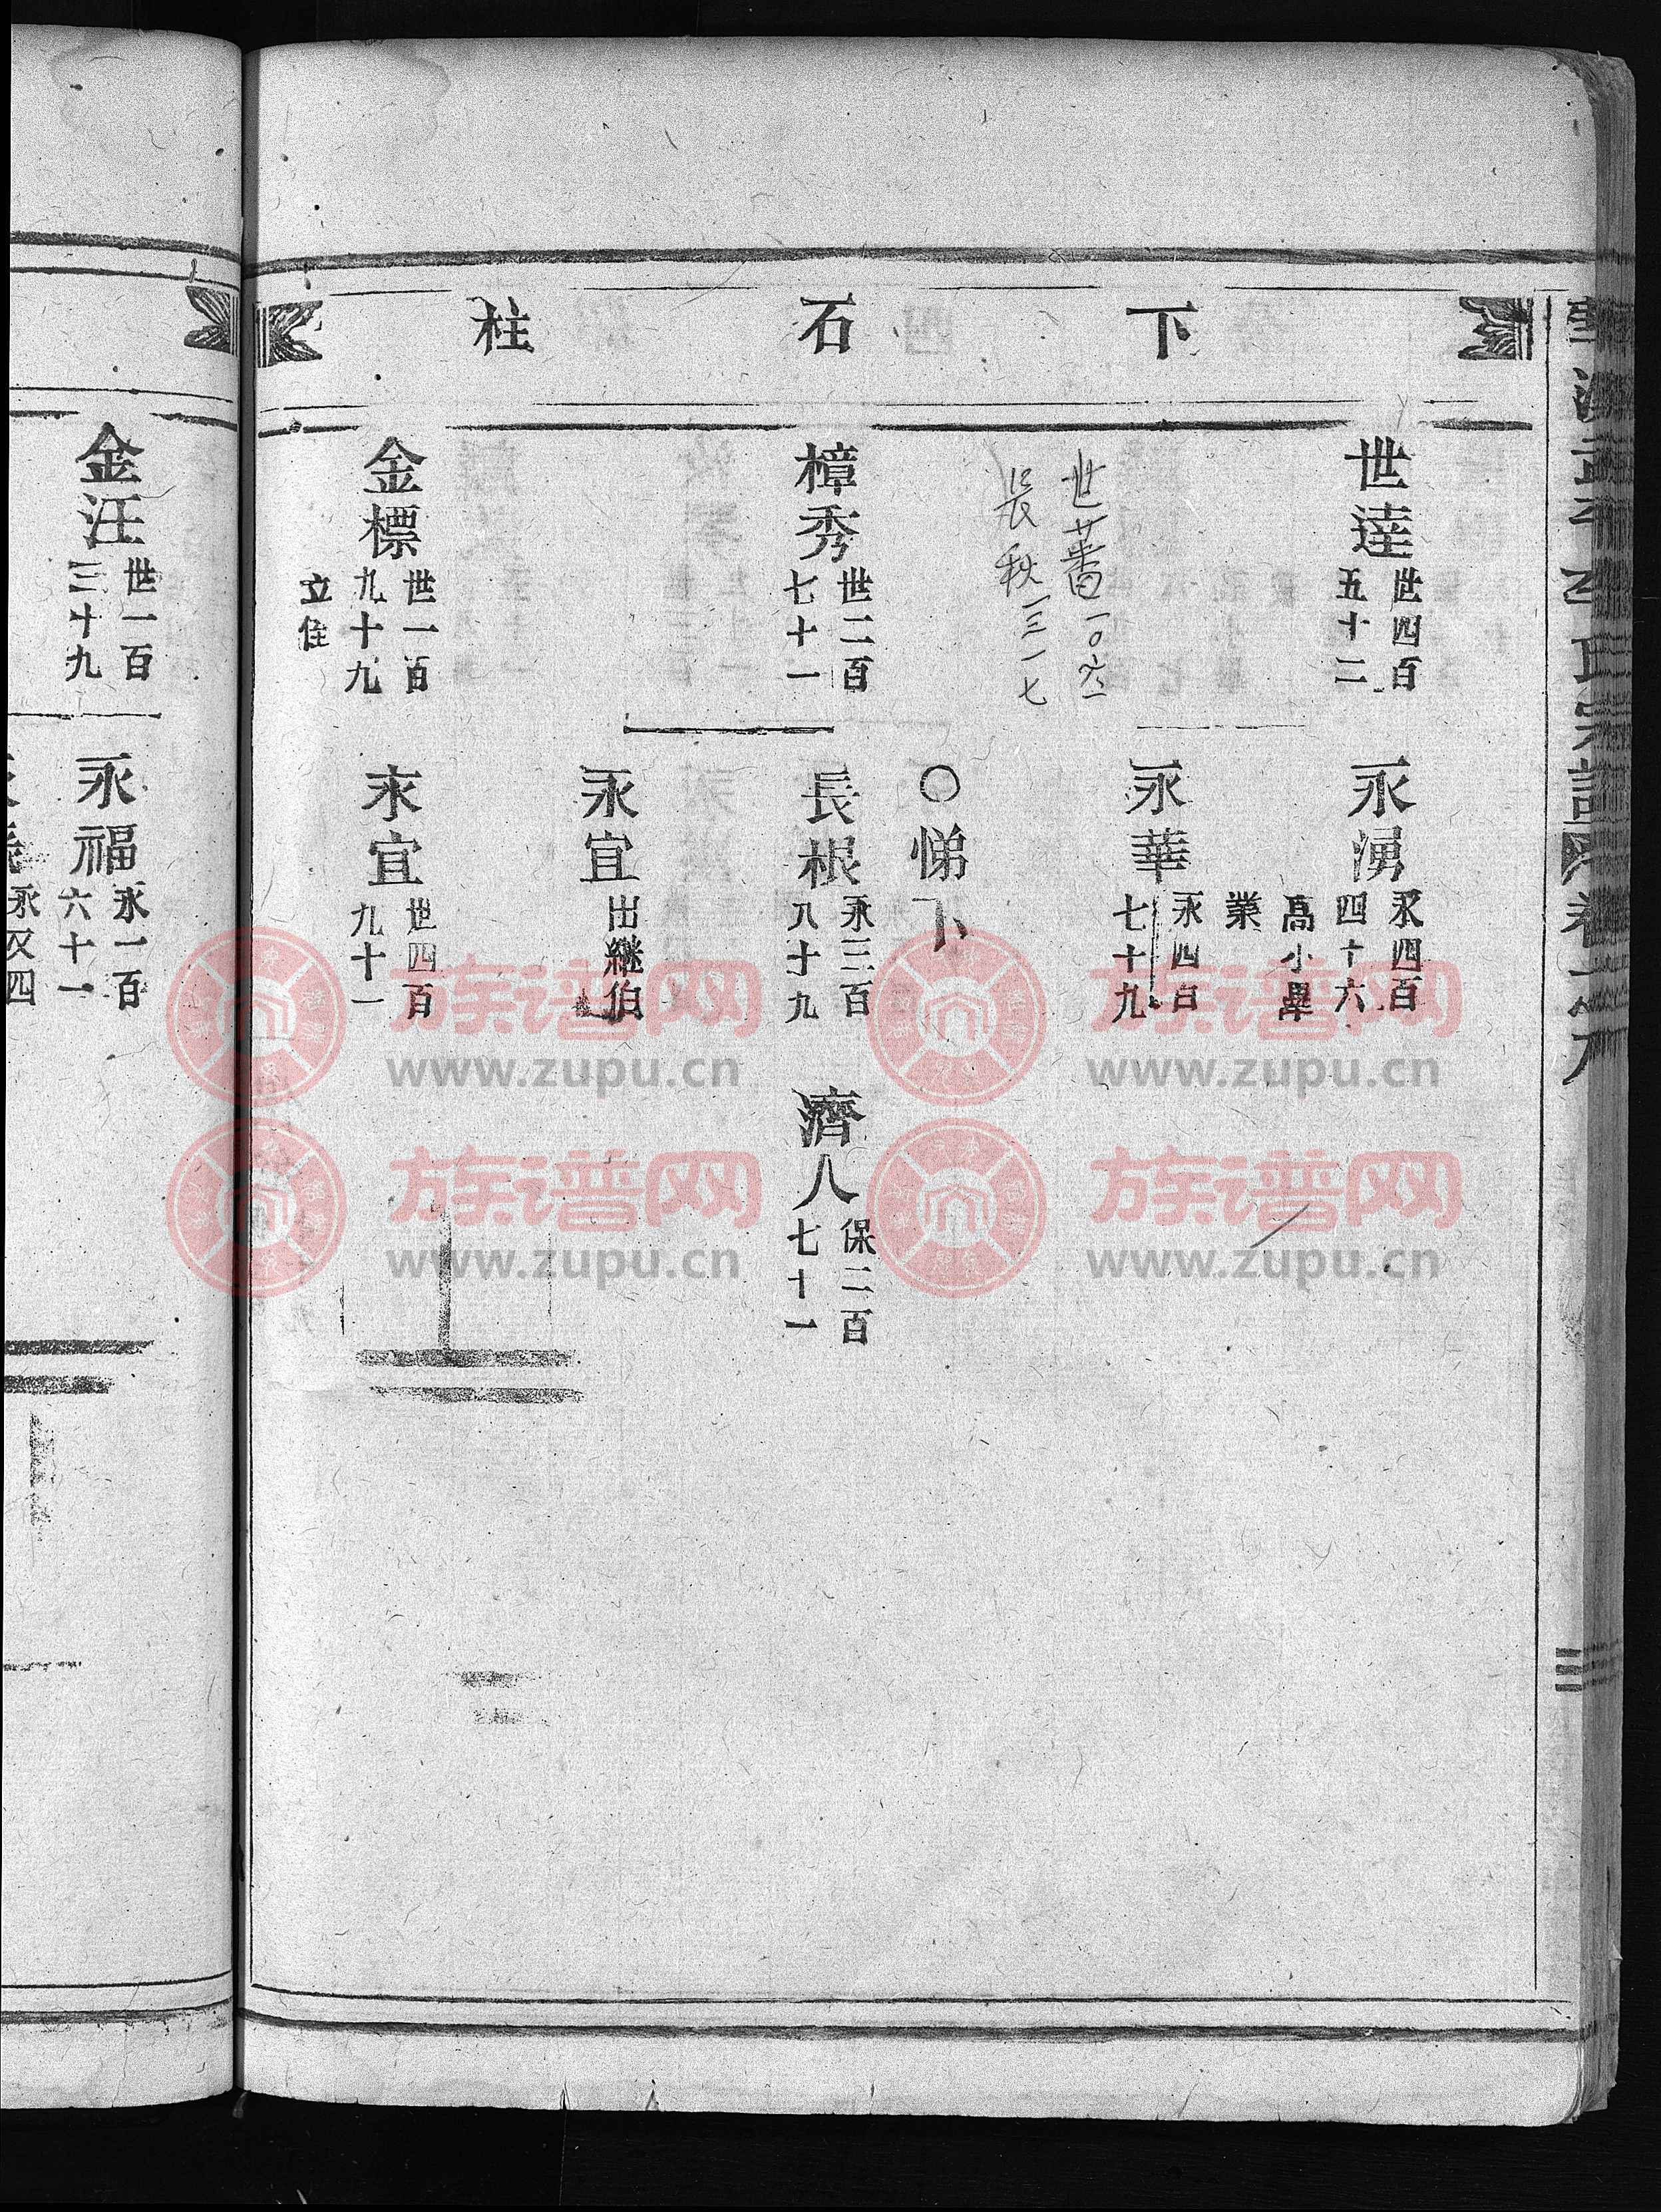 下石柱
世達
世四百
五十二
永湧
永四百
四十六
高小畢
業
永華
永四百
七十九
世蕃
長秋
○悌下
樟秀
世二百
七十一
長根
永三百
八十九
濟人
保二百
七十一
永宜
出繼伯
金標
世一百
九十九
立住
永宜
世四百
九十一
金汪
世一百
三十九
永福
永一百
六十一
族谱网
www.zupu.cn
族谱网
www.zupu.cn
族谱网
www.zupu.cn
族谱网
www.zupu.cn